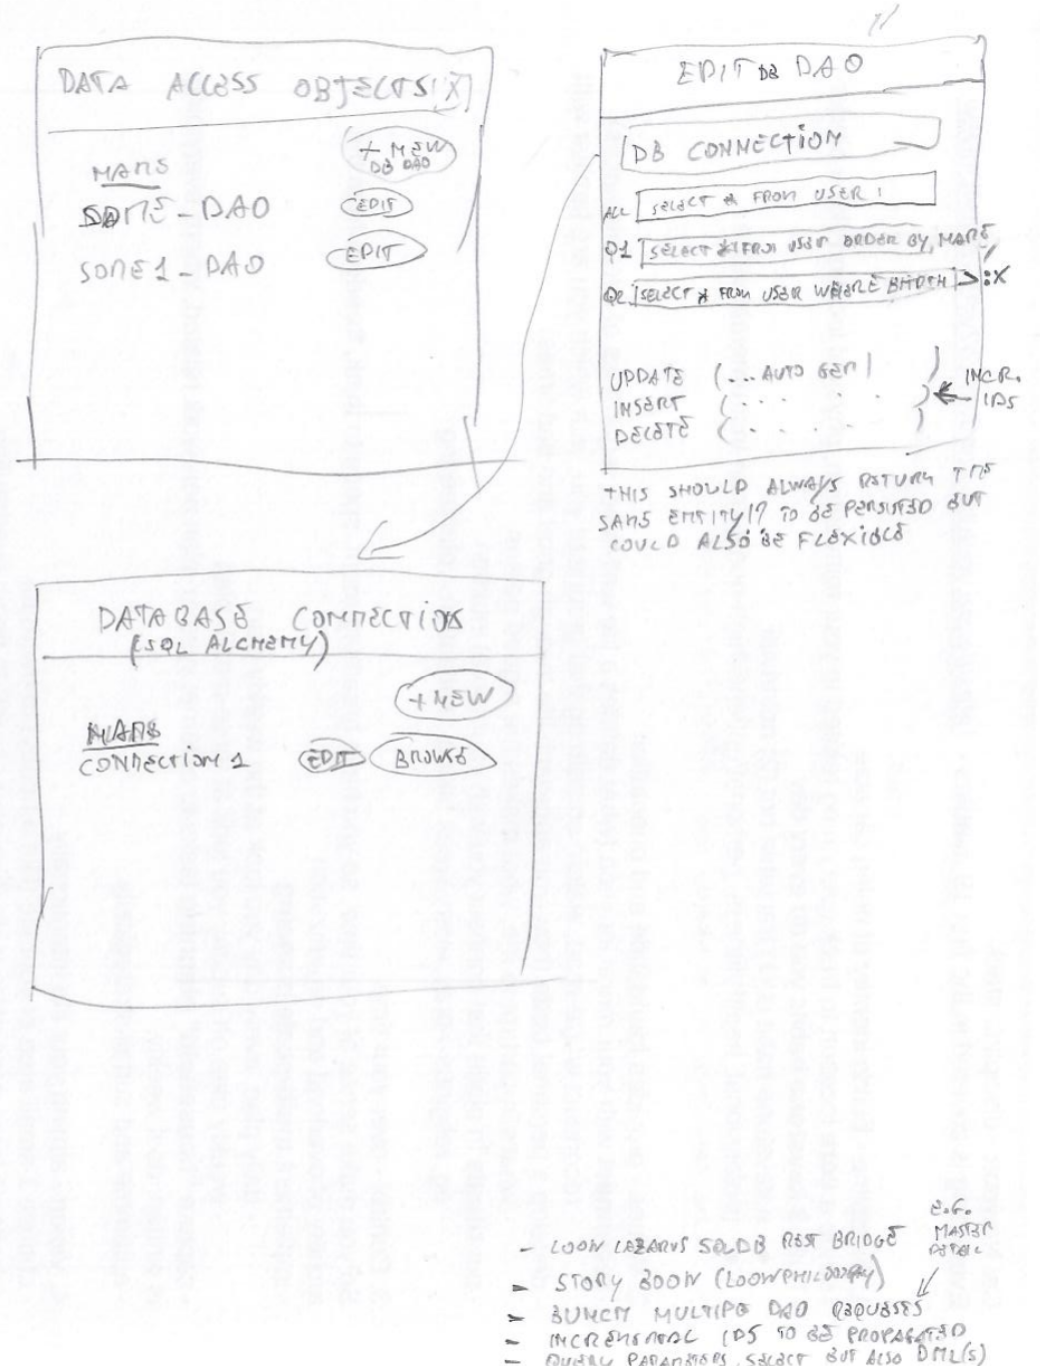 DATA ACCESS OBJECTS [X]
NAME
+ NEW
DB DAO
SOME_DAO
EDIT
SOME1_DAO
EDIT
EDIT DB DAO
DB CONNECTION
ALL SELECT * FROM USER
Q1 SELECT * FROM USER ORDER BY NAME
Q2 SELECT * FROM USER WHERE :X
UPDATE (... AUTO GEN )
INSERT ( . . . . )
DELETE ( . . . . )
INCR.
IDS
THIS SHOULD ALWAYS RETURN THE
SAME ENTITY/? TO BE PERSISTED BUT
COULD ALSO BE FLEXIBLE
DATABASE CONNECTION
(SQL ALCHEMY)
+ NEW
NAME
CONNECTION 1
EDIT
BROWSE
- LOOW LAZARUS SQLDB REST BRIDGE
E.G.
MASTER
DETAIL
- STORY BOOK
- BUNCH MULTIPLE DAO REQUESTS
- INCREMENTAL IDS TO BE PROPAGATED
- QUERY PARAMETERS, SELECT BUT ALSO DML(S)